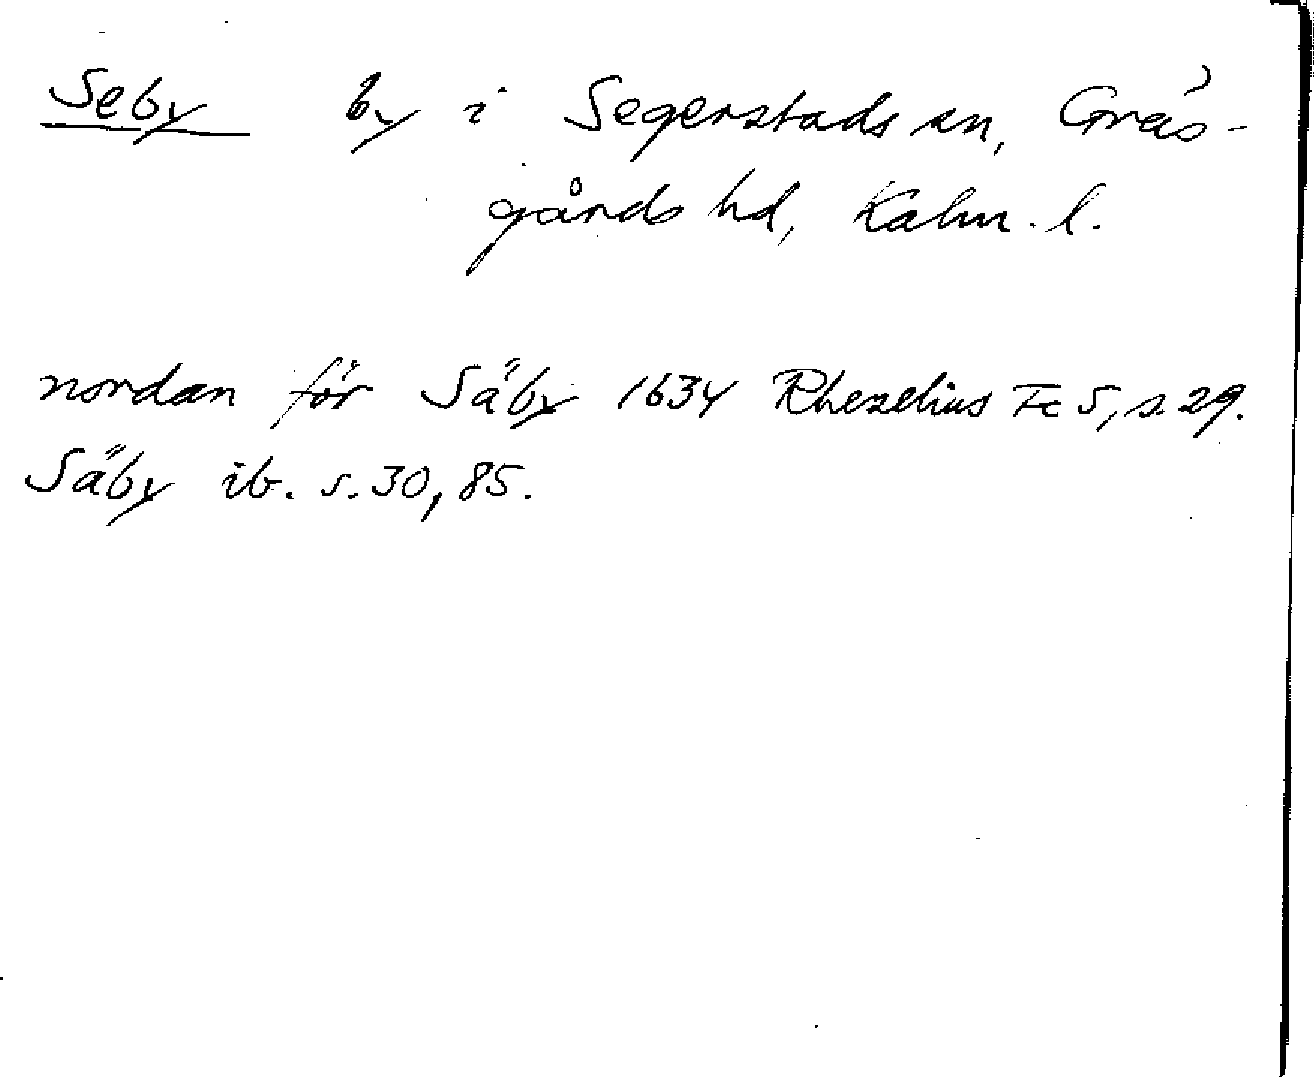 Seby by i Segerstads sn, Gräs-
gårds hd, Kalm. l.
nordan för Säby 1634 Rhezelius Fc 5, s. 29.
Säby ib. s. 30, 85.